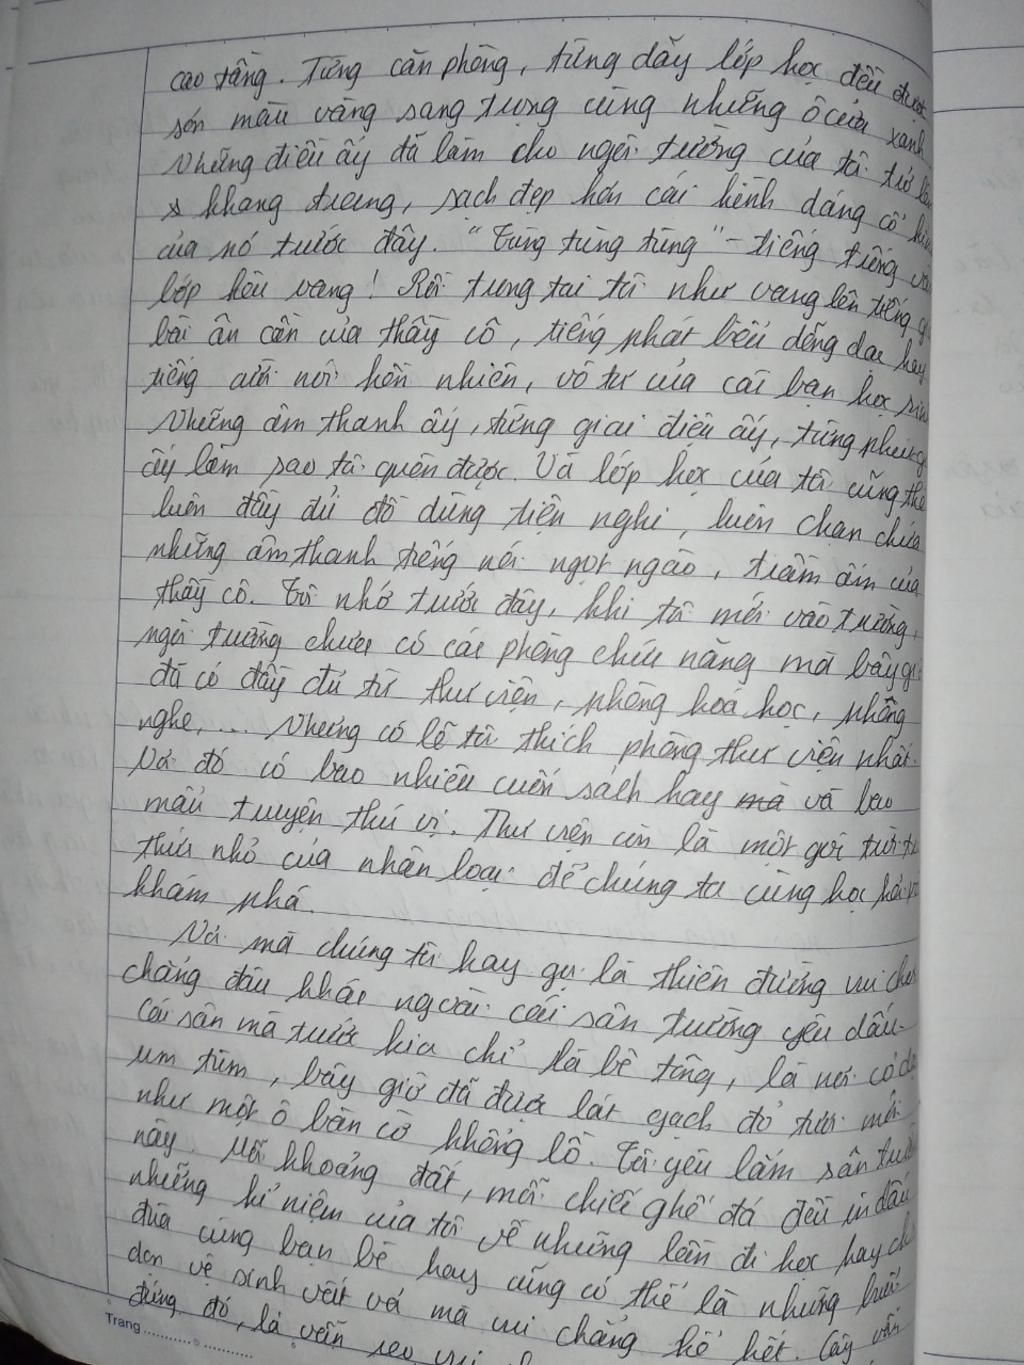 cao tầng. Từng căn phòng, từng dãy lớp học đều được
sơn màu vàng sang trọng cùng những ô cửa xanh
Những điều ấy đã làm cho ngôi trường của tôi trở lên
khang trang, sạch đẹp hơn cái hình dáng cổ
của nó trước đây. "Tùng tùng tùng" - tiếng trống
lớp hôm vang! Rồi trong tai tôi như vang lên tiếng
bài ân cần của thầy cô, tiếng phát biểu dõng dạc hay
tiếng cười nói hồn nhiên, vô tư của các bạn học sinh
Những âm thanh ấy, từng giai điệu ấy, từng
ấy làm sao tôi quên được. Và lớp học của tôi cũng thế
luôn đầy đủ đồ dùng tiện nghi, luôn chan chứa
những âm thanh tiếng nói ngọt ngào, trầm ấm của
thầy cô. Tôi nhớ trước đây, khi tôi mới vào trường,
ngôi trường chưa có các phòng chức năng mà bây giờ
đã có đầy đủ từ thư viện, phòng hoá học, phòng
nghe, ... Nhưng có lẽ tôi thích phòng thư viện nhất.
Nơi đó có bao nhiêu cuốn sách hay mà và bao
mẩu truyện thú vị. Thư viện còn là một
thức nhỏ của nhân loại để chúng ta cùng học hỏi
khám phá.
Nơi mà chúng tôi hay gọi là thiên đường vui chơi
chẳng đâu khác ngoài cái sân trường yêu dấu.
Cái sân mà trước kia chỉ là bê tông, là nơi cỏ dại
um tùm, bây giờ đã được lát gạch đỏ tươi mới
như một ô bàn cờ khổng lồ. Tôi yêu lắm sân trường
này. Mỗi khoảng đất, mỗi chiếc ghế đá đều in dấu
những kỉ niệm của tôi về những lần đi học hay
đùa cùng bạn bè hay cũng có thể là những buổi
dọn vệ sinh vất vả mà vui chẳng kể hết. Cây
đứng đó, là vẫn
Trang